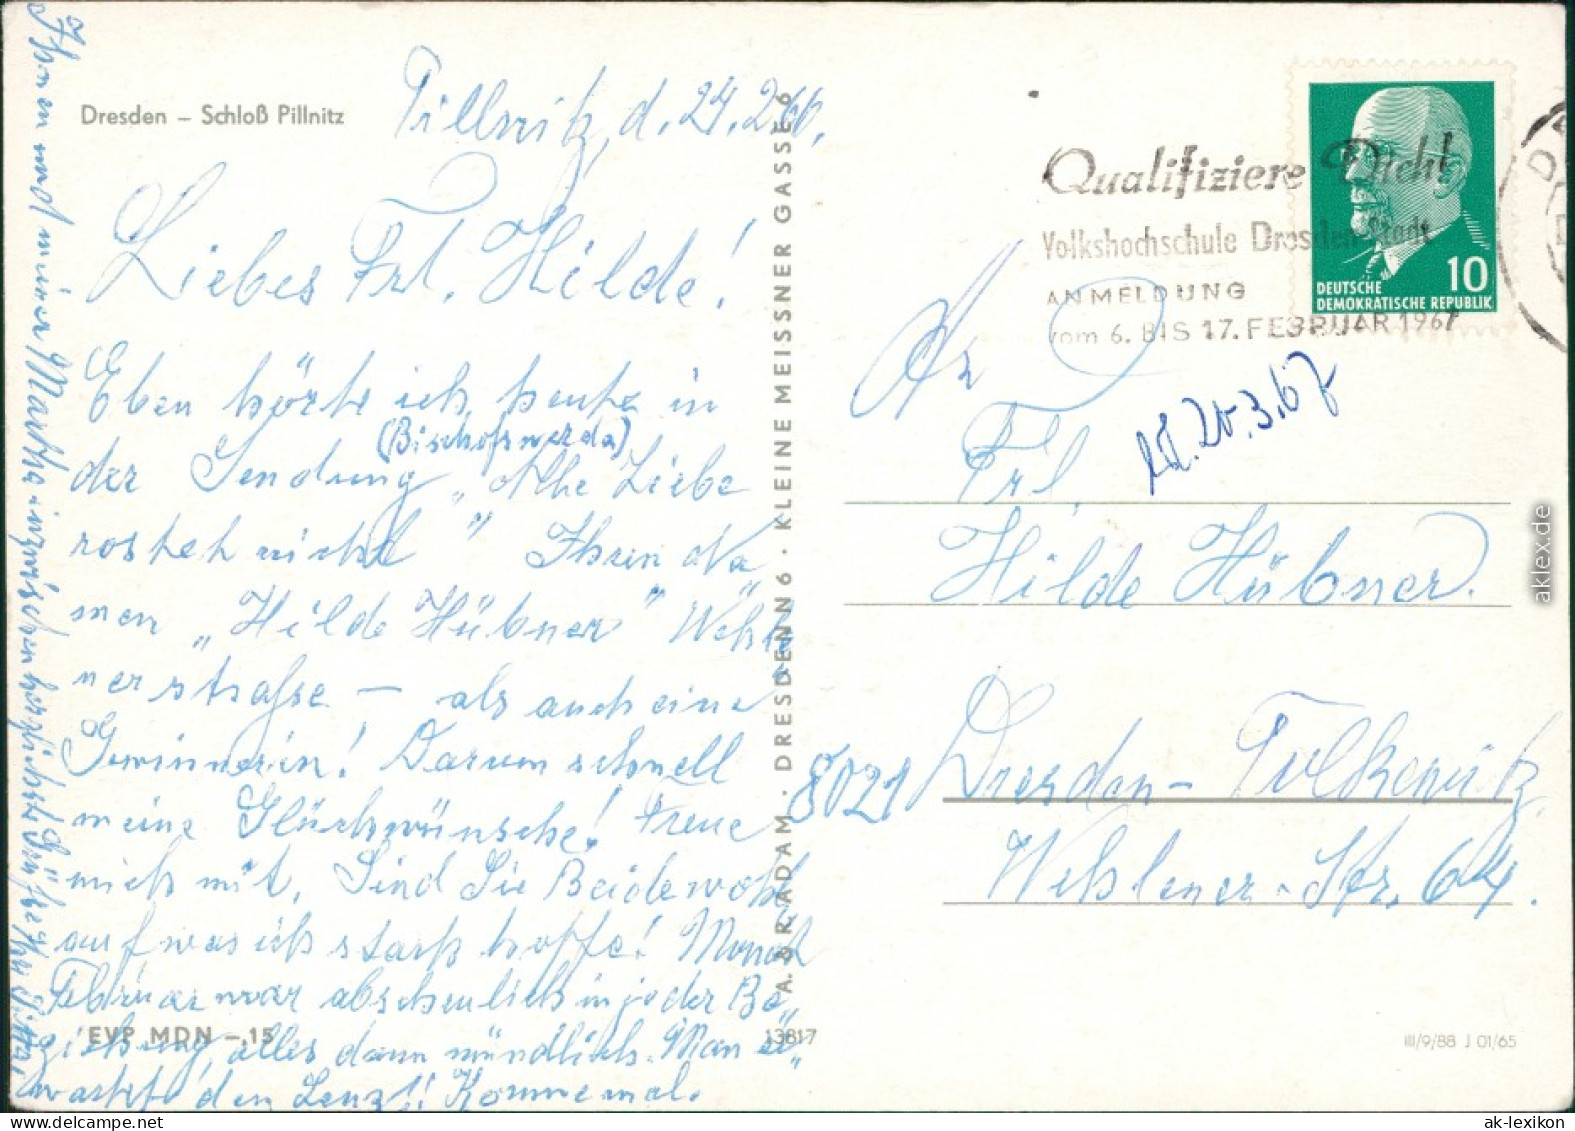 Dresden – Schloß Pillnitz
Pillnitz, d. 24.2.66.
Liebes Frl. Hilde!
Eben hörte ich heute in
(Bischofswerda)
der Sendung „Alte Liebe
rostet nicht" Ihren Na
men „Hilde Hübner" Wehle
nerstraße – als auch eine
Gewinnerin! Darum schnell
meine Glückwünsche! Freue
mich mit. Sind Sie Beide wohl
auf was ich stark hoffe! Monat
Februar war abscheulich in jeder Be„
ziehung, alles dann mündlich. Man er„
wartet den Lenz!! Komme mal.
Ihnen und meiner Martha inzwischen herzlichste Grüße Ihr
EVP MDN –.15
13817
A. & R. ADAM · DRESDEN 6 · KLEINE MEISSNER GASSE 6
Qualifiziere Dich!
Volkshochschule Dresden-Stadt
ANMELDUNG
vom 6. BIS 17. FEBRUAR 1967
10
DEUTSCHE
DEMOKRATISCHE REPUBLIK
An
20.3.67
Frl.
Hilde Hübner.
8021 Dresden-Tolkewitz
Wehlener-Str. 64.
III/9/88 J 01/65
aklex.de
ak-lexikon